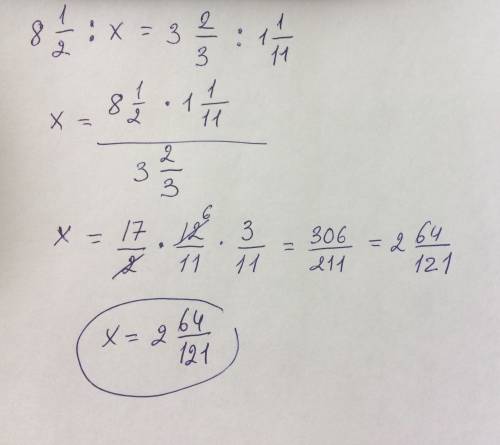 8 1/2 : x = 3 2/3 : 1 1/11
x = (8 1/2 · 1 1/11) / (3 2/3)
x = 17/2 · 12/11 6 · 3/11 = 306/211 = 2 64/121
x = 2 64/121